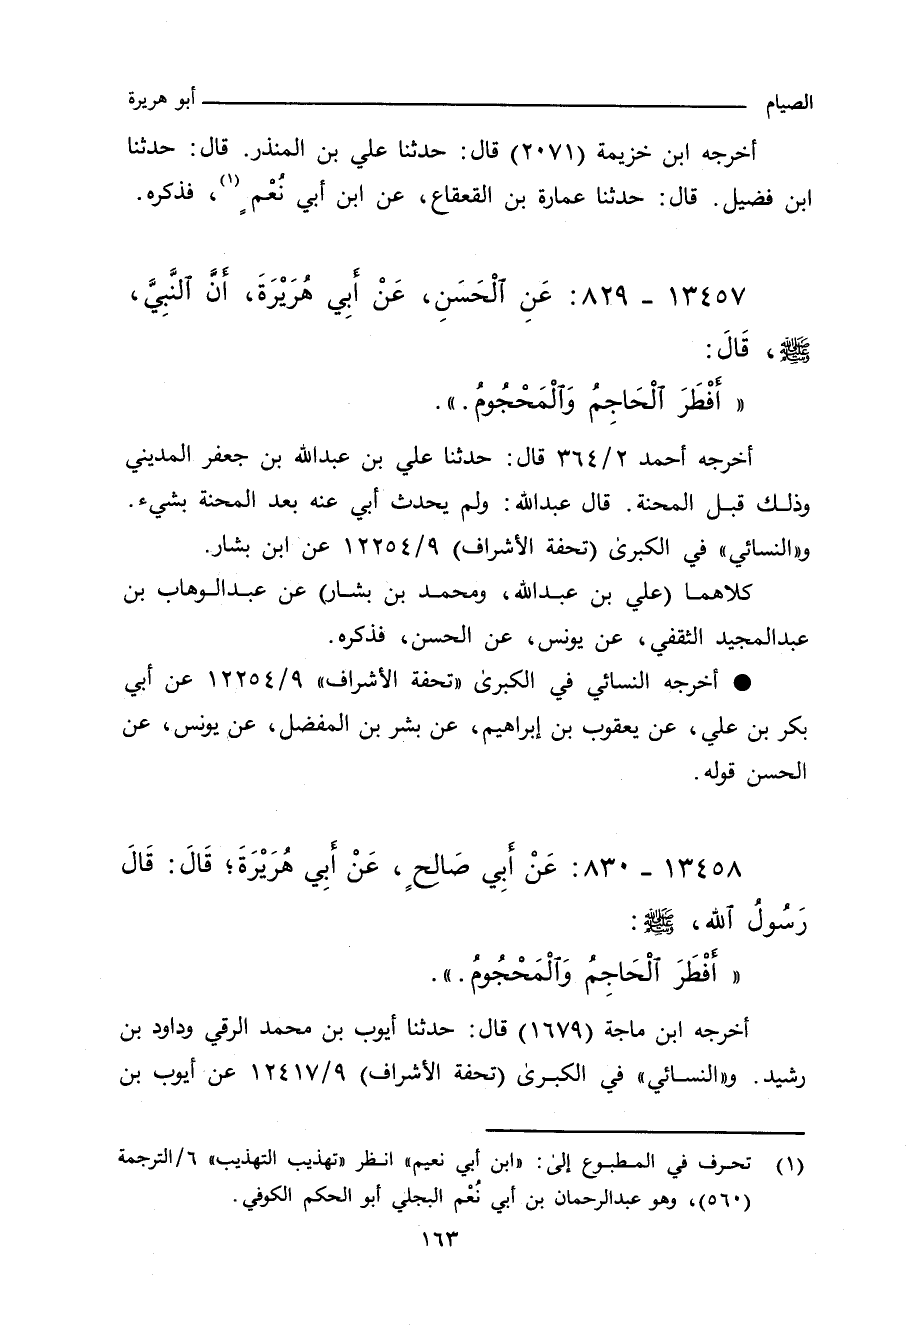 الصيام ــــــــــ أبو هريرة
أخرجه ابن خزيمة (٢٠٧١) قال: حدثنا علي بن المنذر. قال: حدثنا
ابن فضيل. قال: حدثنا عمارة بن القعقاع، عن ابن أبي نُعْمٍ(١)، فذكره.
١٣٤٥٧ ـ ٨٢٩: عَنِ ٱلْحَسَنِ، عَنْ أَبِي هُرَيْرَةَ، أَنَّ ٱلنَّبِيَّ،
ﷺ، قَالَ:
« أَفْطَرَ ٱلْحَاجِمُ وَٱلْمَحْجُومُ.».
أخرجه أحمد ٣٦٤/٢ قال: حدثنا علي بن عبدالله بن جعفر المديني
وذلك قبل المحنة. قال عبدالله: ولم يحدث أبي عنه بعد المحنة بشيء.
و«النسائي» في الكبرىٰ (تحفة الأشراف) ١٢٢٥٤/٩ عن ابن بشار.
كلاهما (علي بن عبدالله، ومحمد بن بشار) عن عبدالوهاب بن
عبدالمجيد الثقفي، عن يونس، عن الحسن، فذكره.
● أخرجه النسائي في الكبرىٰ «تحفة الأشراف» ١٢٢٥٤/٩ عن أبي
بكر بن علي، عن يعقوب بن إبراهيم، عن بشر بن المفضل، عن يونس، عن
الحسن قوله.
١٣٤٥٨ ـ ٨٣٠: عَنْ أَبِي صَالِحٍ، عَنْ أَبِي هُرَيْرَةَ؛ قَالَ: قَالَ
رَسُولُ ٱلله، ﷺ:
« أَفْطَرَ ٱلْحَاجِمُ وَٱلْمَحْجُومُ.».
أخرجه ابن ماجة (١٦٧٩) قال: حدثنا أيوب بن محمد الرقي وداود بن
رشيد. و«النسائي» في الكبرىٰ (تحفة الأشراف) ١٢٤١٧/٩ عن أيوب بن
(١) تحرف في المطبوع إلىٰ: «ابن أبي نعيم» انظر «تهذيب التهذيب» ٦/الترجمة
(٥٦٠)، وهو عبدالرحمان بن أبي نُعْم البجلي أبو الحكم الكوفي.
١٦٣